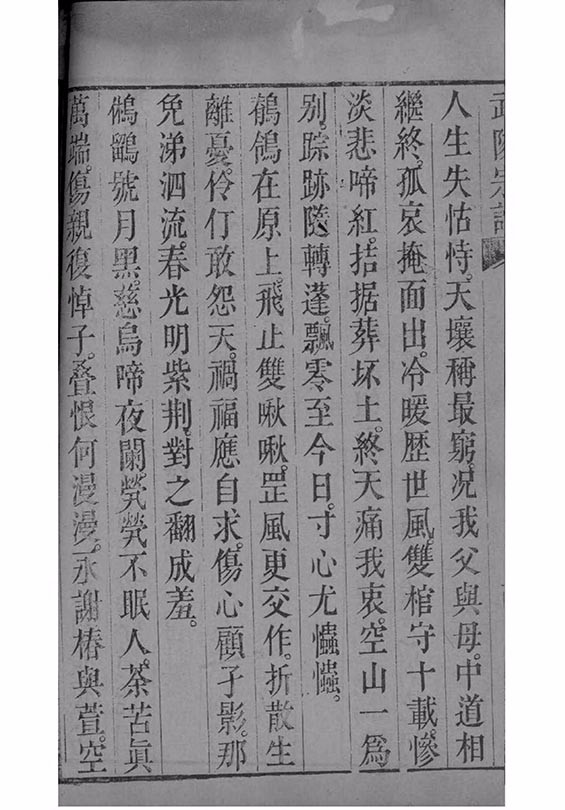 人生失怙恃。天壤稱最窮。况我父與母。中道相
繼終。孤哀掩面出。冷暖歷世風。雙棺守十載。慘
淡悲啼紅。拮据葬坏土。終天痛我衷。空山一爲
别。踪跡隨轉蓬。飄零至今日。寸心尤懾懾。
鶺鴒在原上。飛止雙啾啾。罡風更交作。折散生
離憂。伶仃敢怨天。禍福應自求。傷心顧孑影。那
免涕泗流。春光明紫荆。對之翻成羞。
鵂鶹號月黑。慈烏啼夜闌。煢煢不眠人。荼苦眞
萬端。傷親復悼子。叠恨何漫漫。永謝椿與萱。空